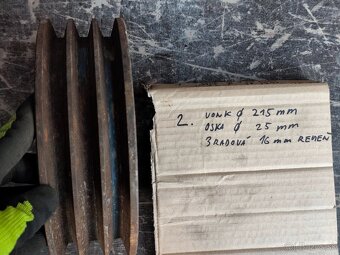 2. VONK Ø 215 mm
OSKA Ø 25 mm
3 RADOVÁ 16 mm REMEŇ